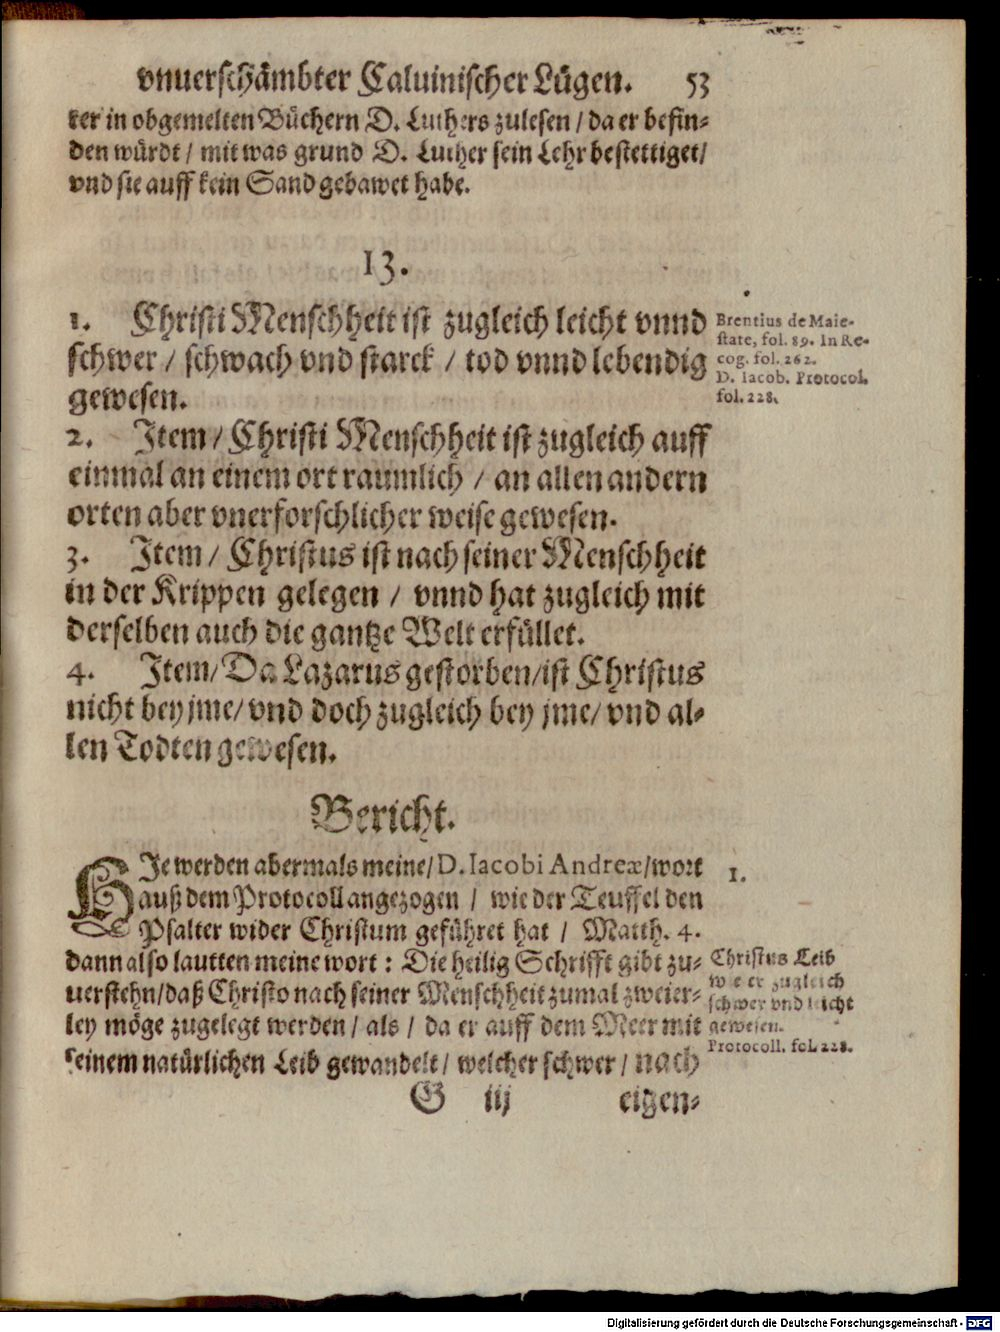 vnuerschämbter Caluinischer Lügen. 53
ker in obgemelten Büchern D. Luthers zulesen / da er befin-
den würdt / mit was grund D. Luther sein Lehr bestettiget/
vnd sie auff kein Sand gebawet habe.
13.
1. Christi Menschheit ist zugleich leicht vnnd
schwer / schwach vnd starck / tod vnnd lebendig
gewesen.
Brentius de Maie-
state, fol. 89. In Re-
cog. fol. 262.
D. Iacob. Protocol.
fol. 228.
2. Item / Christi Menschheit ist zugleich auff
einmal an einem ort raumlich / an allen andern
orten aber vnerforschlicher weise gewesen.
3. Item / Christus ist nach seiner Menschheit
in der Krippen gelegen / vnnd hat zugleich mit
derselben auch die gantze Welt erfüllet.
4. Item / Da Lazarus gestorben / ist Christus
nicht bey jme / vnd doch zugleich bey jme / vnd al-
len Todten gewesen.
Bericht.
HIe werden abermals meine / D. Iacobi Andreæ / wort
auß dem Protocoll angezogen / wie der Teuffel den
Psalter wider Christum geführet hat / Matth. 4.
dann also lautten meine wort : Die heilig Schrifft gibt zu-
uerstehn / daß Christo nach seiner Menschheit zumal zweier-
ley möge zugelegt werden / als / da er auff dem Meer mit
seinem natürlichen Leib gewandelt / welcher schwer / nach
1.
Christus Leib
wie er zugleich
schwer vnd leicht
gewesen.
Protocoll. fol. 228.
G iij eigen-
Digitalisierung gefördert durch die Deutsche Forschungsgemeinschaft - DFG